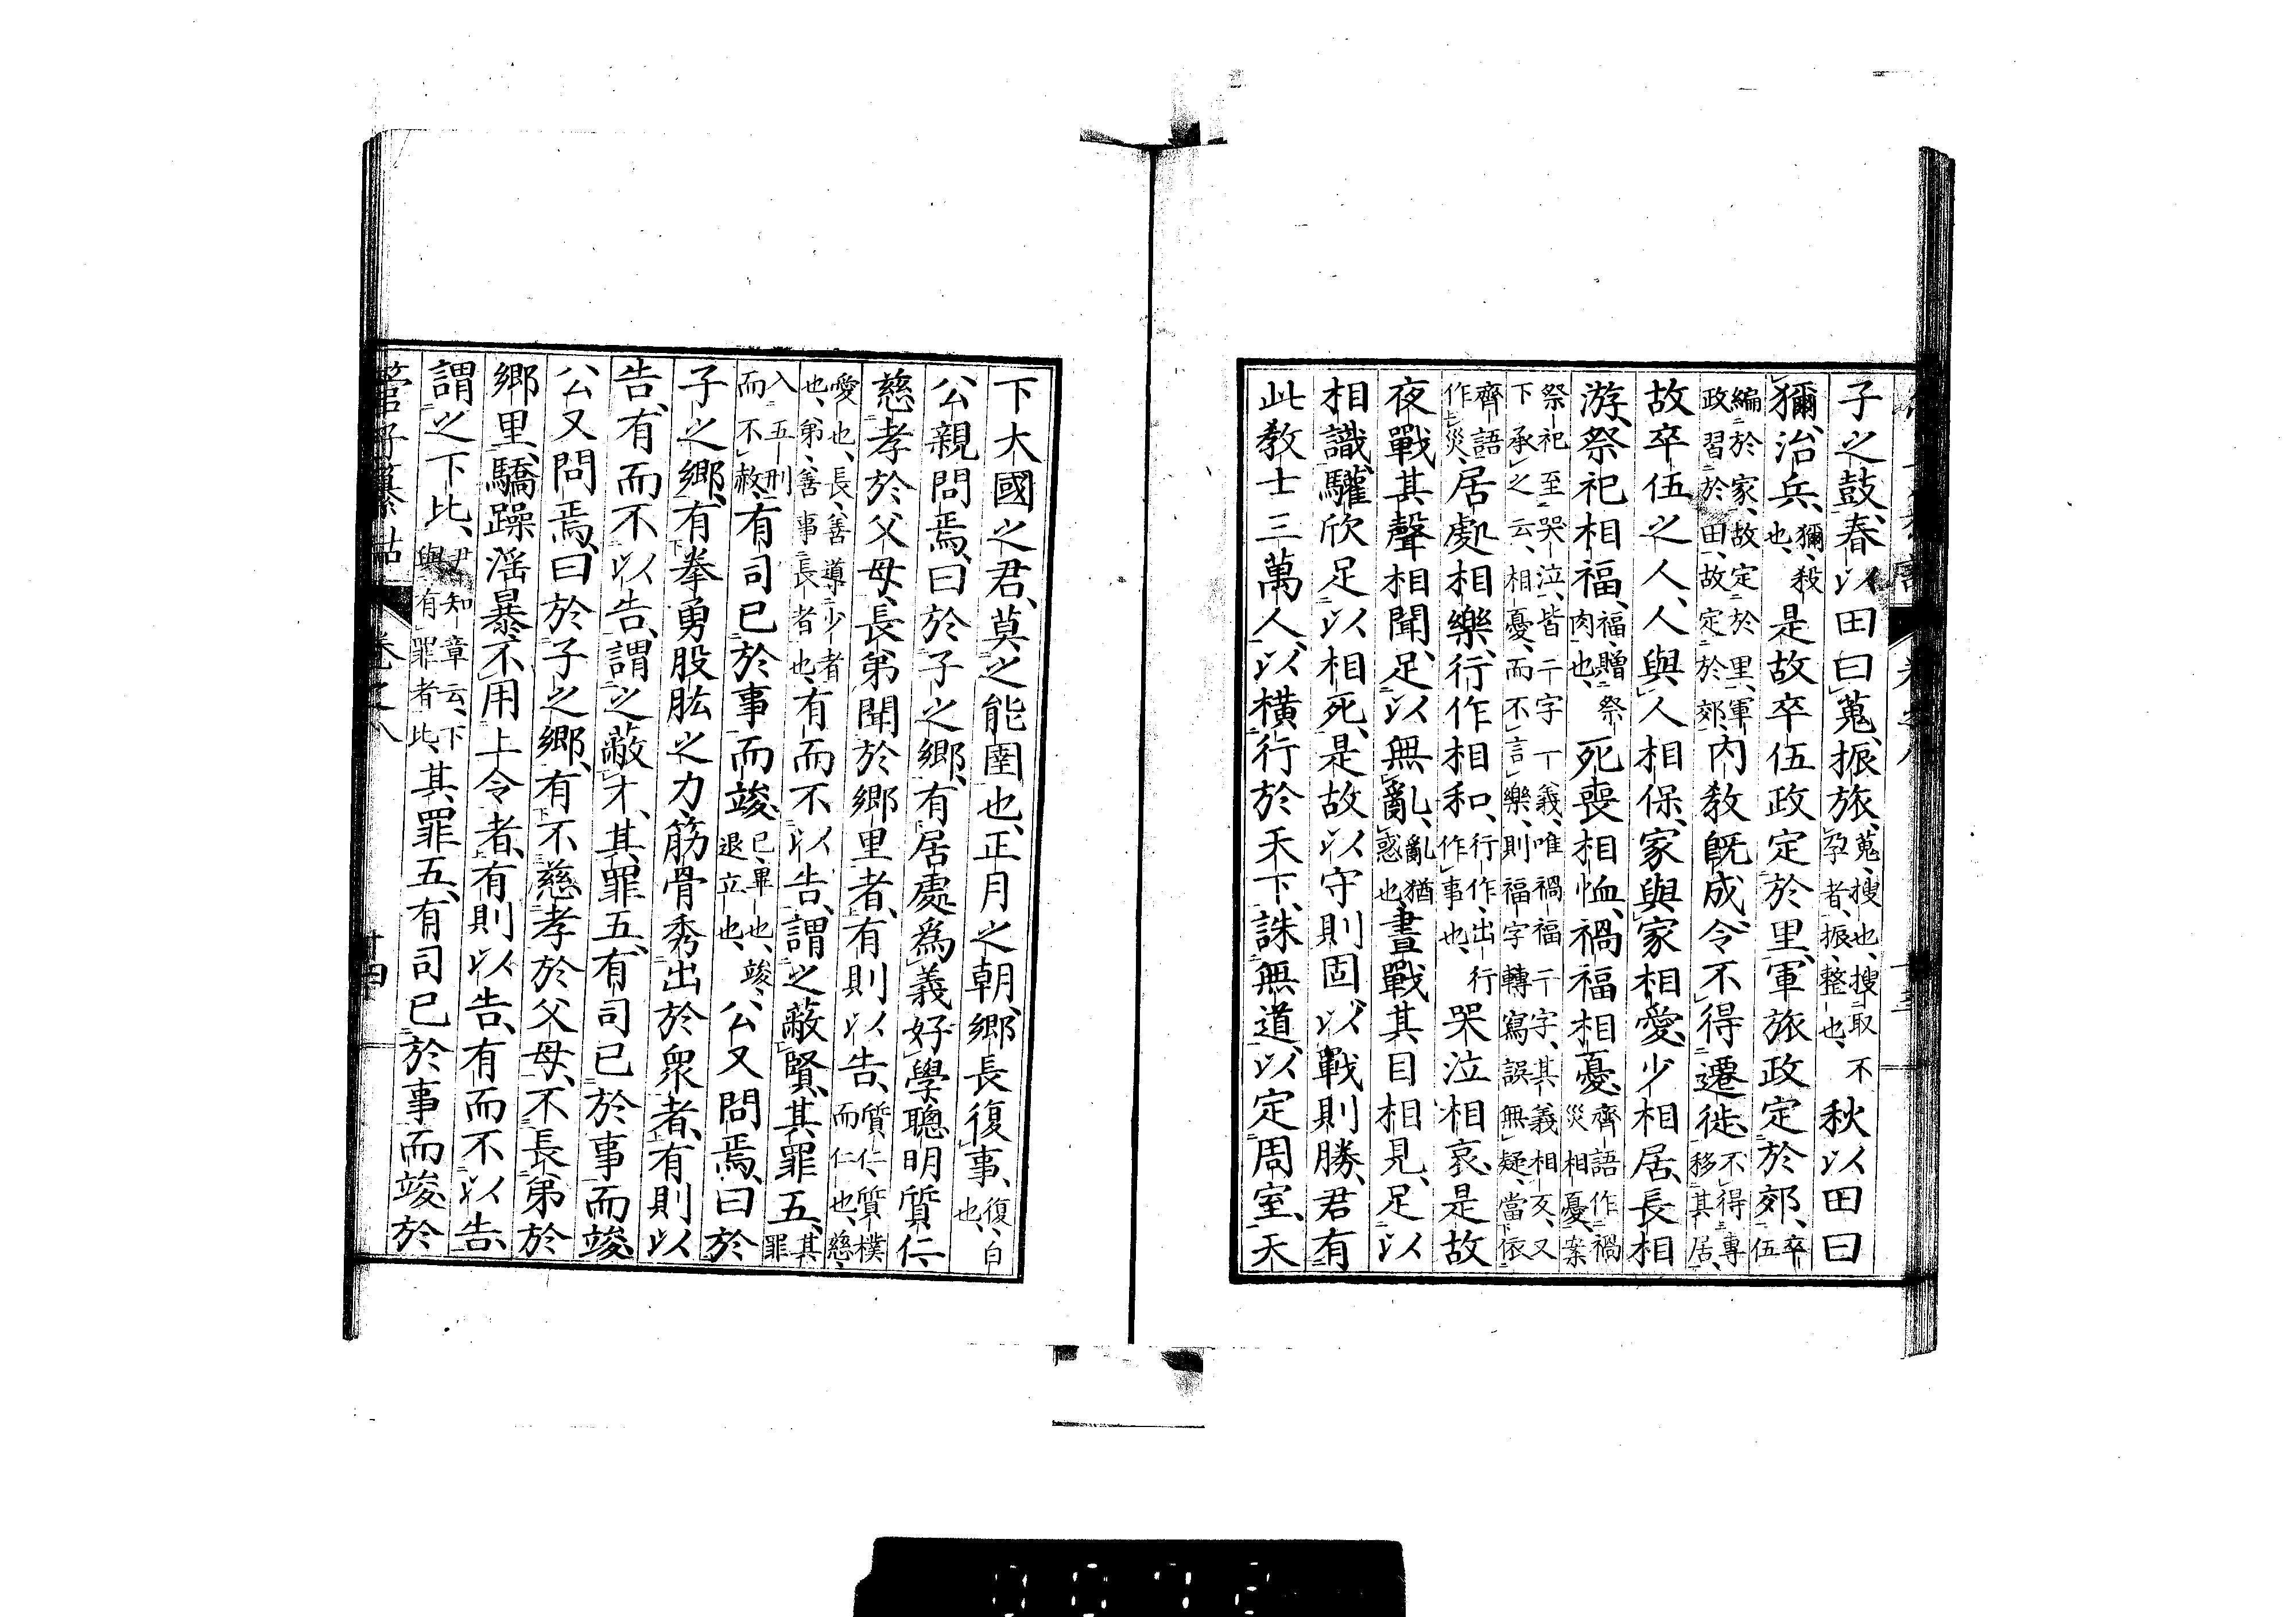 子之鼓、春以田曰蒐、振旅、蒐、搜也、搜取不孕者、振、整也、秋以田曰
獮、治兵、獮、殺也、是故卒伍政定於里、軍旅政定於郊、卒伍
編於家、故定於里、軍政習於田、故定於郊、內教既成、令不得遷徙、不得專移其居、
故卒伍之人、人與人相保、家與家相愛、少相居、長相
游、祭祀相福、福、贈祭肉也、死喪相恤、禍福相憂、齊語作禍災相憂、案
祭祀至哭泣、皆二字一義、唯禍福二字、其義相反、又下承之云、相憂、而不言樂、則福字轉寫誤無疑、當依
齊語作災、居處相樂、行作相和、行作、出行作事也、哭泣相哀、是故
夜戰其聲相聞、足以無亂、亂猶惑也、晝戰其目相見、足以
相識、驩欣足以相死、是故以守則固、以戰則勝、君有
此教士三萬人、以橫行於天下、誅無道、以定周室、天
下大國之君、莫之能圉也、正月之朝、鄉長復事、復、白也、
公親問焉、曰於子之鄉、有居處爲義好學聰明質仁、
慈孝於父母、長弟聞於鄉里者、有則以告、質仁、質樸而仁也、慈、
愛也、長、善導少者也、弟、善事長者也、有而不以告、謂之蔽賢、其罪五、其罪
入五刑而不赦、有司已於事而竣、已、畢也、竣、退立也、公又問焉、曰於
子之鄉、有拳勇股肱之力、筋骨秀出於衆者、有則以
告、有而不以告、謂之蔽才、其罪五、有司已於事而竣、
公又問焉、曰於子之鄉、有不慈孝於父母、不長弟於
鄉里、驕躁淫暴、不用上令者、有則以告、有而不以告、
謂之下比、尹知章云、下與有罪者比、其罪五、有司已於事而竣、於
管子纂詁 卷之八 十四